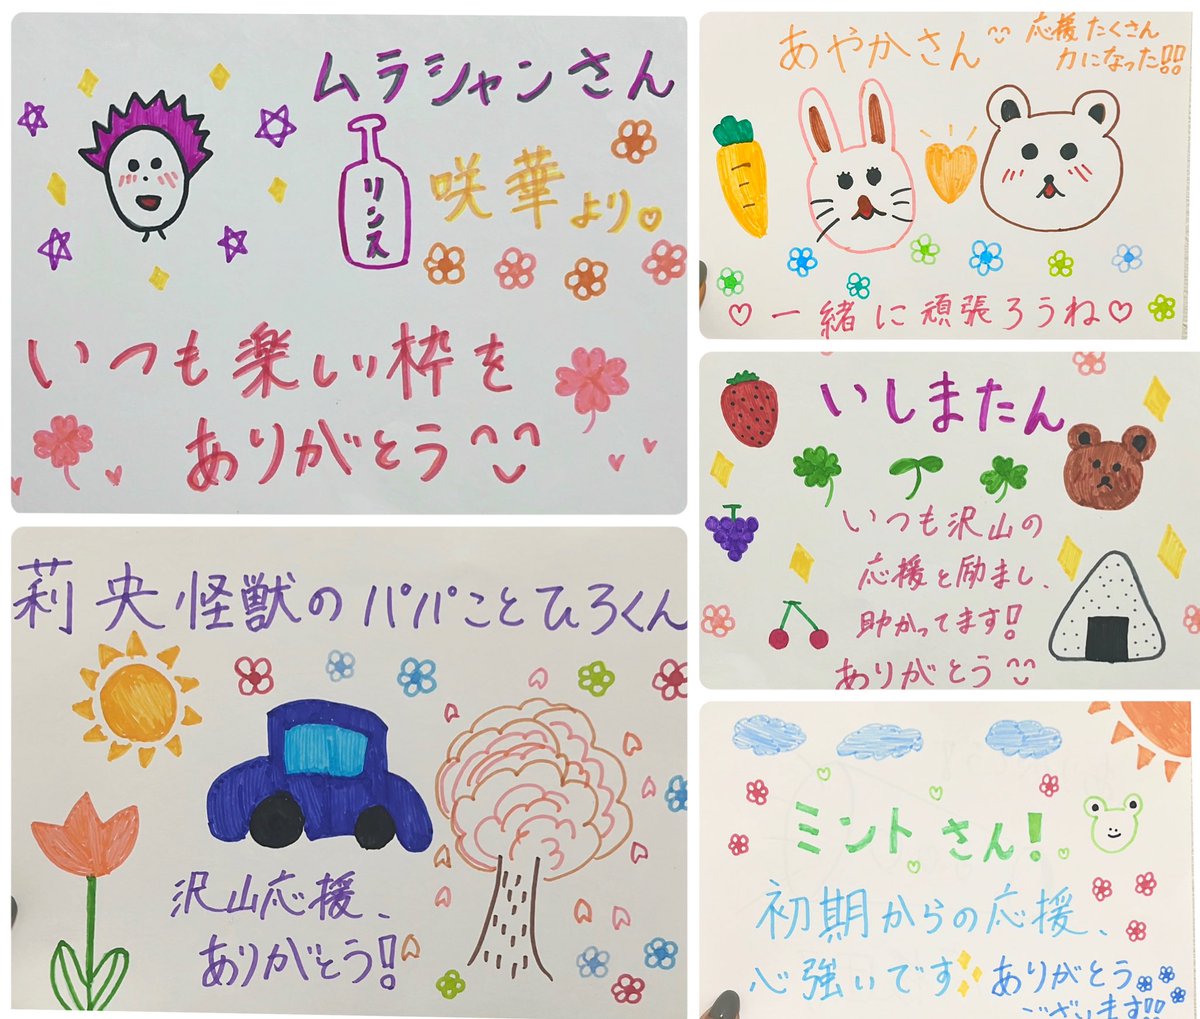 ムラシャンさん
リンス
咲華より
いつも楽しい枠を
ありがとう
あやかさん
応援たくさん
力になった!!
一緒に頑張ろうね
いしまたん
いつも沢山の
応援と励まし、
助かってます!
ありがとう
莉央怪獣のパパことひろくん
沢山応援、
ありがとう!
ミントさん!
初期からの応援、
心強いです
ありがとう
ございます!!